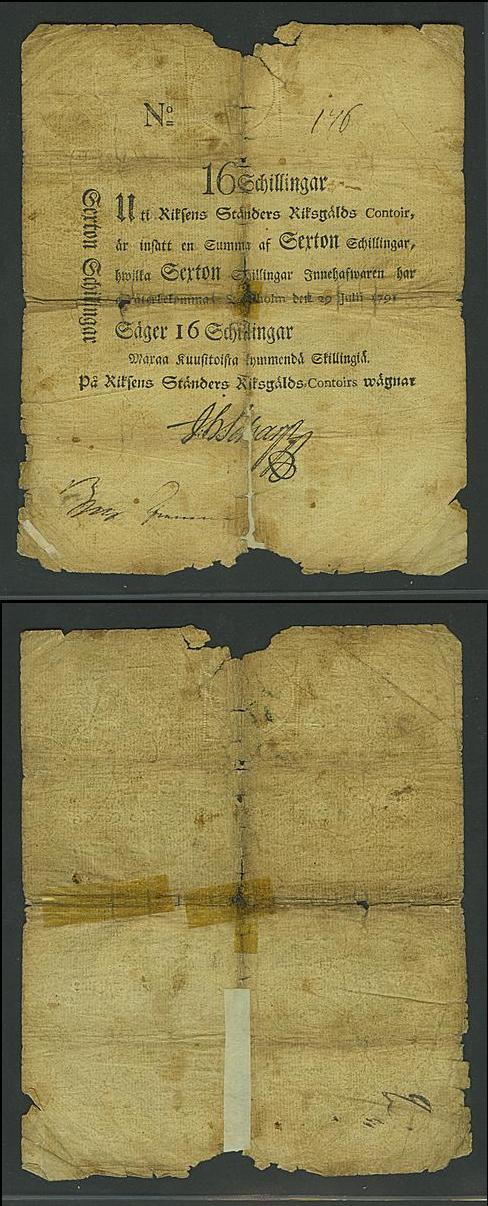 No 146
16 Schillingar
Uti Riksens Ständers Riksgälds Contoir,
är insatt en Summa af Sexton Schillingar,
hwilka Sexton Schillingar Innehafwaren har
återbekomma. Stockholm den 29 Julii 1791
Säger 16 Schillingar
Maxaa Kuusitoista kymmendä Skillingiä.
På Riksens Ständers Riksgälds-Contoirs wägnar
Sexton Schillingar